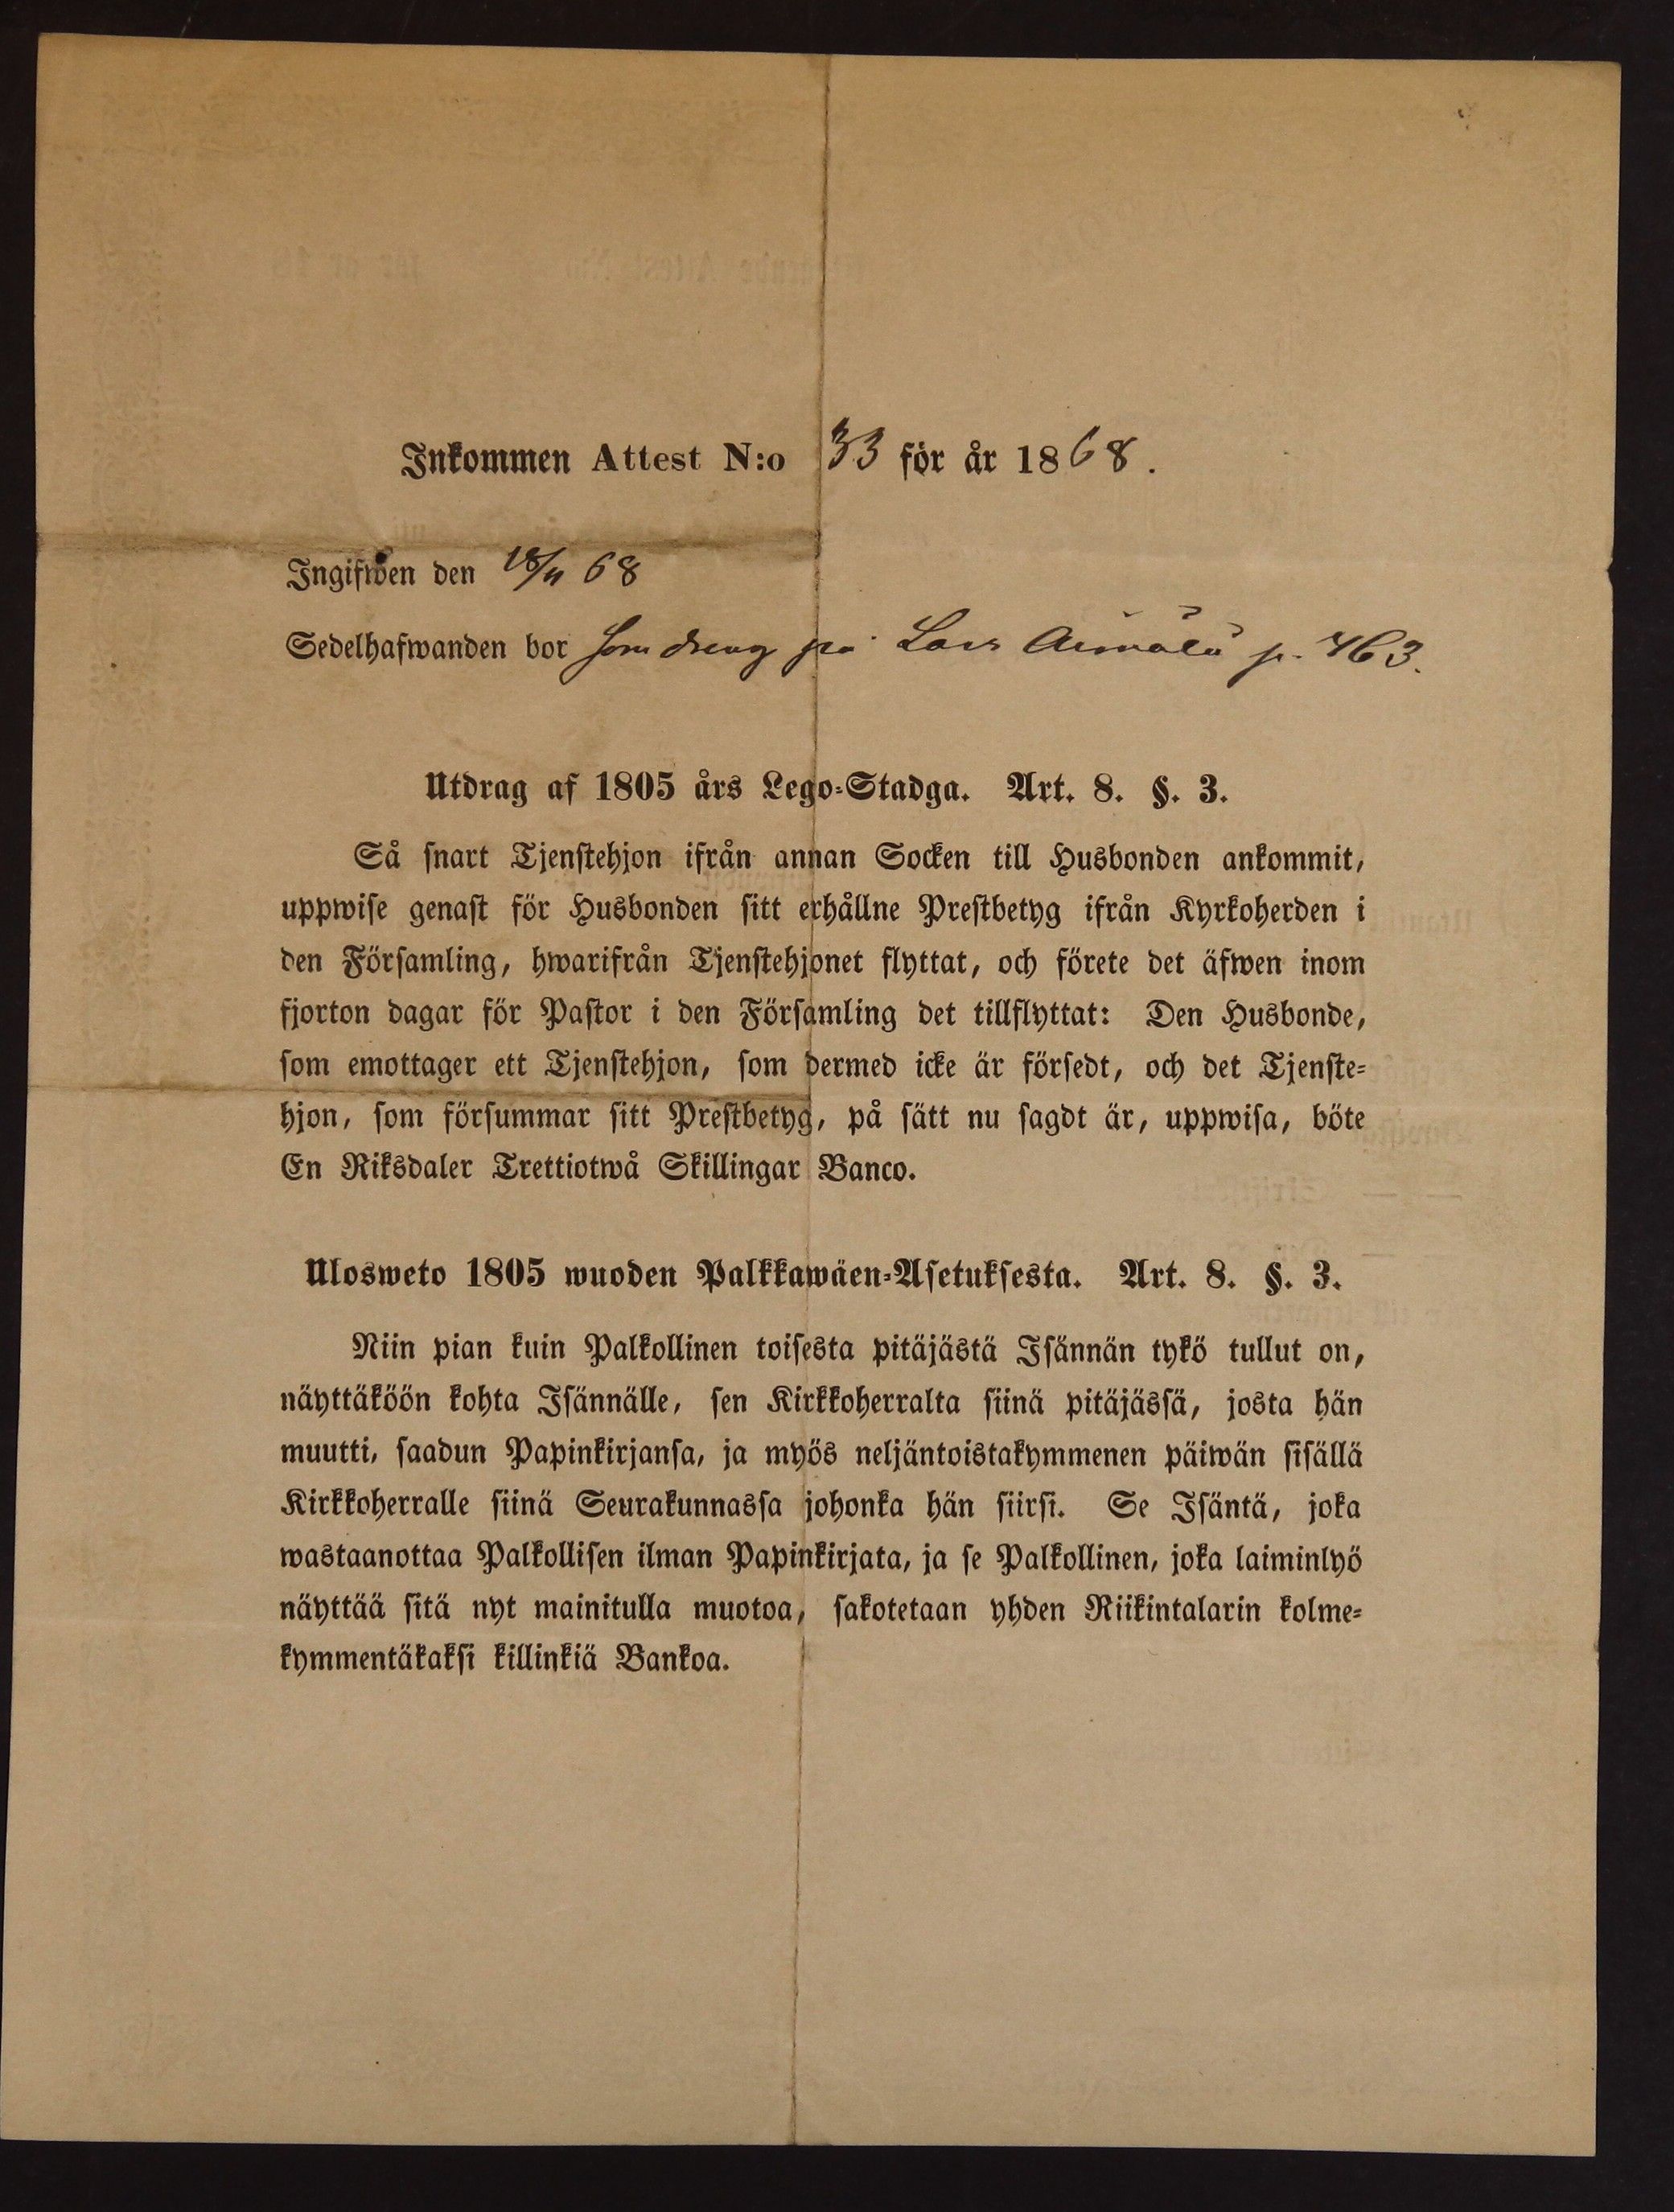 Inkommen Attest N:o 33 för år 1868.
Ingifwen den 18/11 68
Sedelhafwanden bor som dreng på Lars p. 463.
Utdrag af 1805 års Lego-Stadga. Art. 8. §. 3.
Så snart Tjenstehjon ifrån annan Socken till Husbonden ankommit,
uppwise genast för Husbonden sitt erhållne Prestbetyg ifrån Kyrkoherden i
den Församling, hwarifrån Tjenstehjonet flyttat, och förete det äfwen inom
fjorton dagar för Pastor i den Församling det tillflyttat: Den Husbonde,
som emottager ett Tjenstehjon, som dermed icke är försedt, och det Tjenste-
hjon, som försummar sitt Prestbetyg, på sätt nu sagdt är, uppwisa, böte
En Riksdaler Trettiotwå Skillingar Banco.
Ulosweto 1805 wuoden Palkkawäen-Asetuksesta. Art. 8. §. 3.
Niin pian kuin Palkollinen toisesta pitäjästä Isännän tykö tullut on,
näyttäköön kohta Isännälle, sen Kirkkoherralta siinä pitäjässä, josta hän
muutti, saadun Papinkirjansa, ja myös neljäntoistakymmenen päiwän sisällä
Kirkkoherralle siinä Seurakunnassa johonka hän siirsi. Se Isäntä, joka
wastaanottaa Palkollisen ilman Papinkirjata, ja se Palkollinen, joka laiminlyö
näyttää sitä nyt mainitulla muotoa, sakotetaan yhden Riikintalarin kolme-
kymmentäkaksi killinkiä Bankoa.